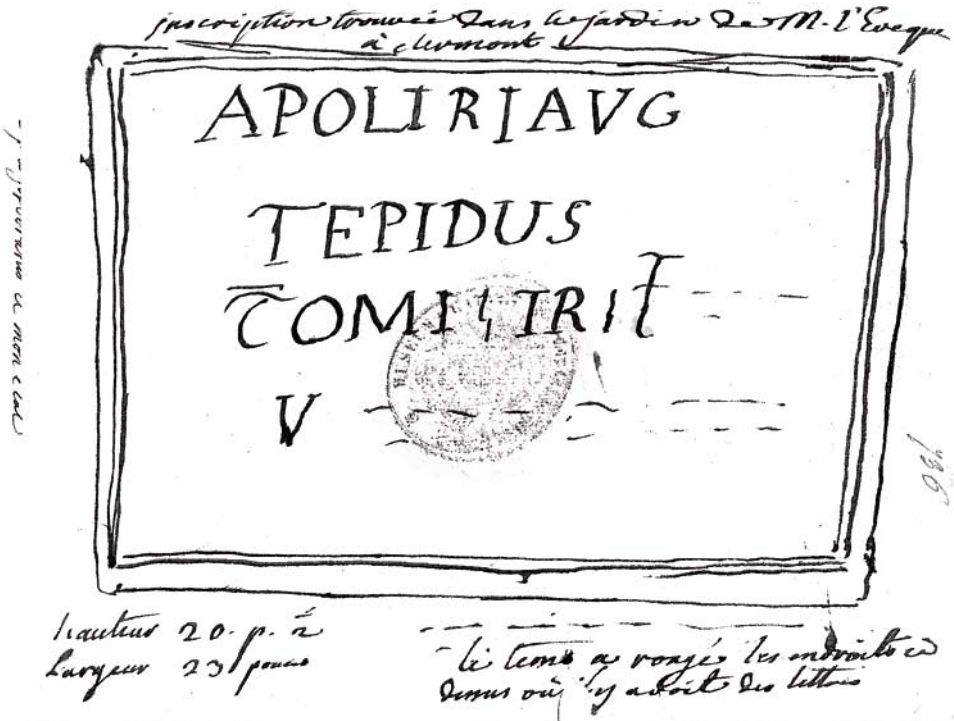 inscription trouvée dans le jardin de M. l'Eveque
à clermont
APOLIRIAVG
TEPIDUS
TOMI IRIT
V
hauteur 20. p. 2
Largeur 23 pouces
le tems a rongé les endroits cy
dessus où il y avoit des lettres
436